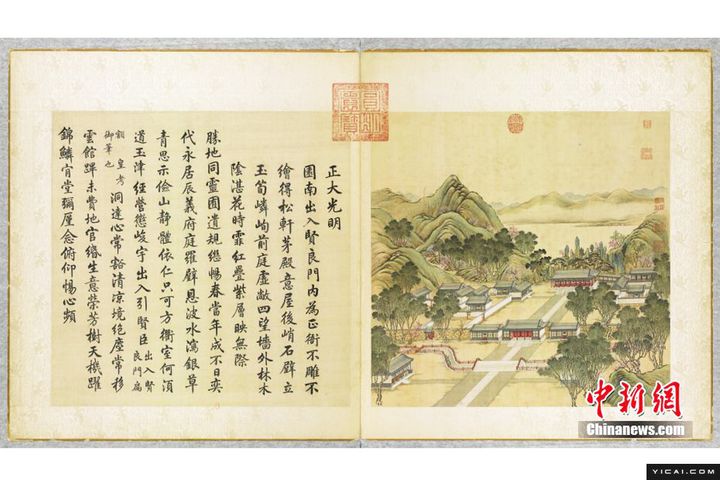 正大光明
園南出入賢良門內為正衙不雕不
繪得松軒茅殿意屋後峭石壁立
玉筍嶙峋前庭虛敞四望墻外林木
陰湛花時霏紅疊紫層映無際
勝地同靈囿遺規繼暢春當年成不日奕
代永居辰義府庭羅壁恩波水瀉銀草
青思示儉山靜體依仁只可方衢室何須
道玉津經營懲峻宇出入引賢臣出入賢良門扁
額皇考御筆也洞達心常豁清涼境絕塵常移
雲館蹕未費地官緡生意榮芳樹天機躍
錦鱗肯堂彌厪念俯仰惕心頻
中新网
Chinanews.com
YICAI.COM